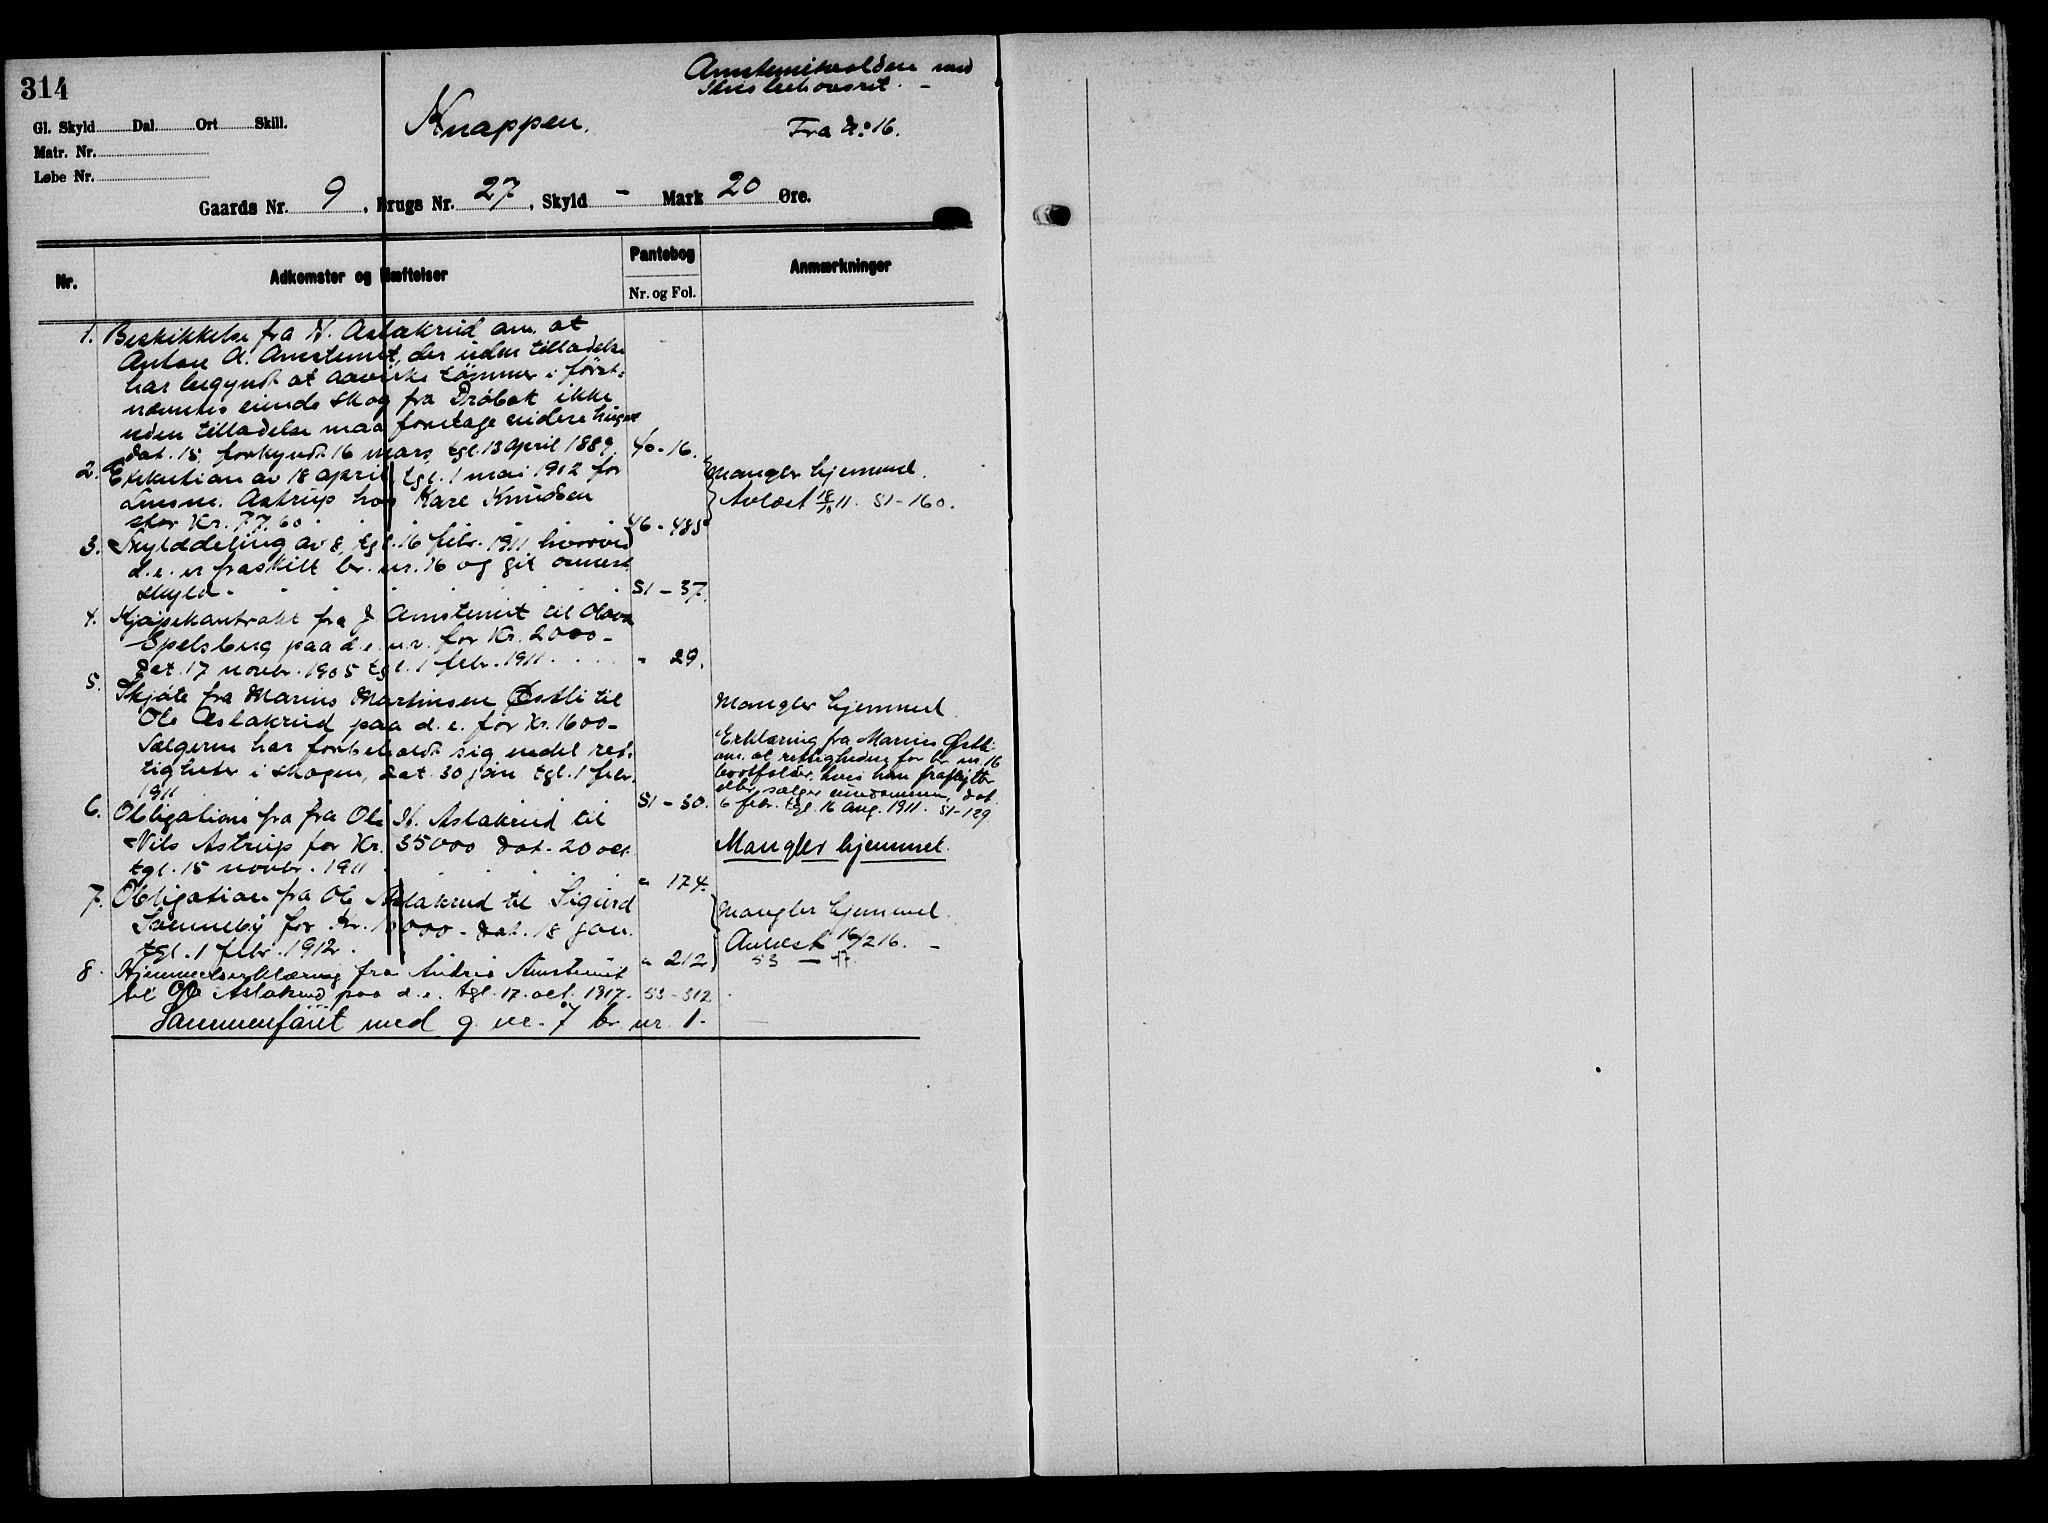 314
Gl. Skyld Dal. Ort Skill.
Matr. Nr.
Løbe Nr.
Knappen.
med
Fra No 16.
Gaards Nr. 9, Brugs Nr. 27, Skyld - Mark 20 Øre.
Nr.
Adkomster og Hæftelser
Pantebog
Nr. og Fol.
Anmærkninger
1. Beskikkelse fra N. Aslakrud om, at
Anton A. Amstemut, der uden tilladelse
har begyndt at aavirke tømmer i først-
nævntes eiende skog fra Prøbøk ikke
uden tilladelse maa foretage videre hugst
dat. 15, forkyndt 16 mars, tgl. 13 april 1889. 40-16.
2. Exekution av 18 april, tgl. 1 mai 1912 for
Astrup hos Kare Knudsen
stor Kr. 77.60 46-485
Mangler hjemmel.
Avlæst 18/10 11. 51-160.
3. Skylddeling av 8, tgl. 16 febr. 1911, hvorved
d. e. er fraskilt br. nr. 16 og git
skyld. 51-37.
4. Kjøpekontrakt fra J. Amstemut til
Epelsberg paa d. e. for Kr. 2000-
dat. 17 novbr. 1905 tgl. 1 febr. 1911. " 29.
5. Skjøte fra Marius Martinsen Østli til
Ole Aslakrud paa d. e. for Kr. 1600-
Sælgeren har forbeholdt sig endel ret-
tigheter i skogen, dat. 30 jan. tgl. 1 febr.
1911 51-30.
Mangler hjemmel
Erklæring fra Marius Østli
om at rettigheden for br. nr. 16
bortfalder, hvis han fraflytter
eller sælger eiendommen, dat.
6 febr. tgl. 16 aug. 1911. 51-129
6. Obligation fra fra Ole N. Aslakrud til
Nils Astrup for Kr. 35000 dat. 20 oct.
tgl. 15 novbr. 1911 " 174.
Mangler hjemmel.
7. Obligation fra Ole Aslakrud til Sigurd
for Kr. 10000- dat. 18 jan.
tgl. 1 febr. 1912. " 212
Mangler hjemmel.
Avlæst 16/2 16. -
53 -
8. Hjemmelserklæring fra Andrea Amstemut
til Ole Aslakrud paa d. e. tgl. 17. oct. 1917. 53-312.
Sammenføiet med g. nr. 7 br. nr. 1.